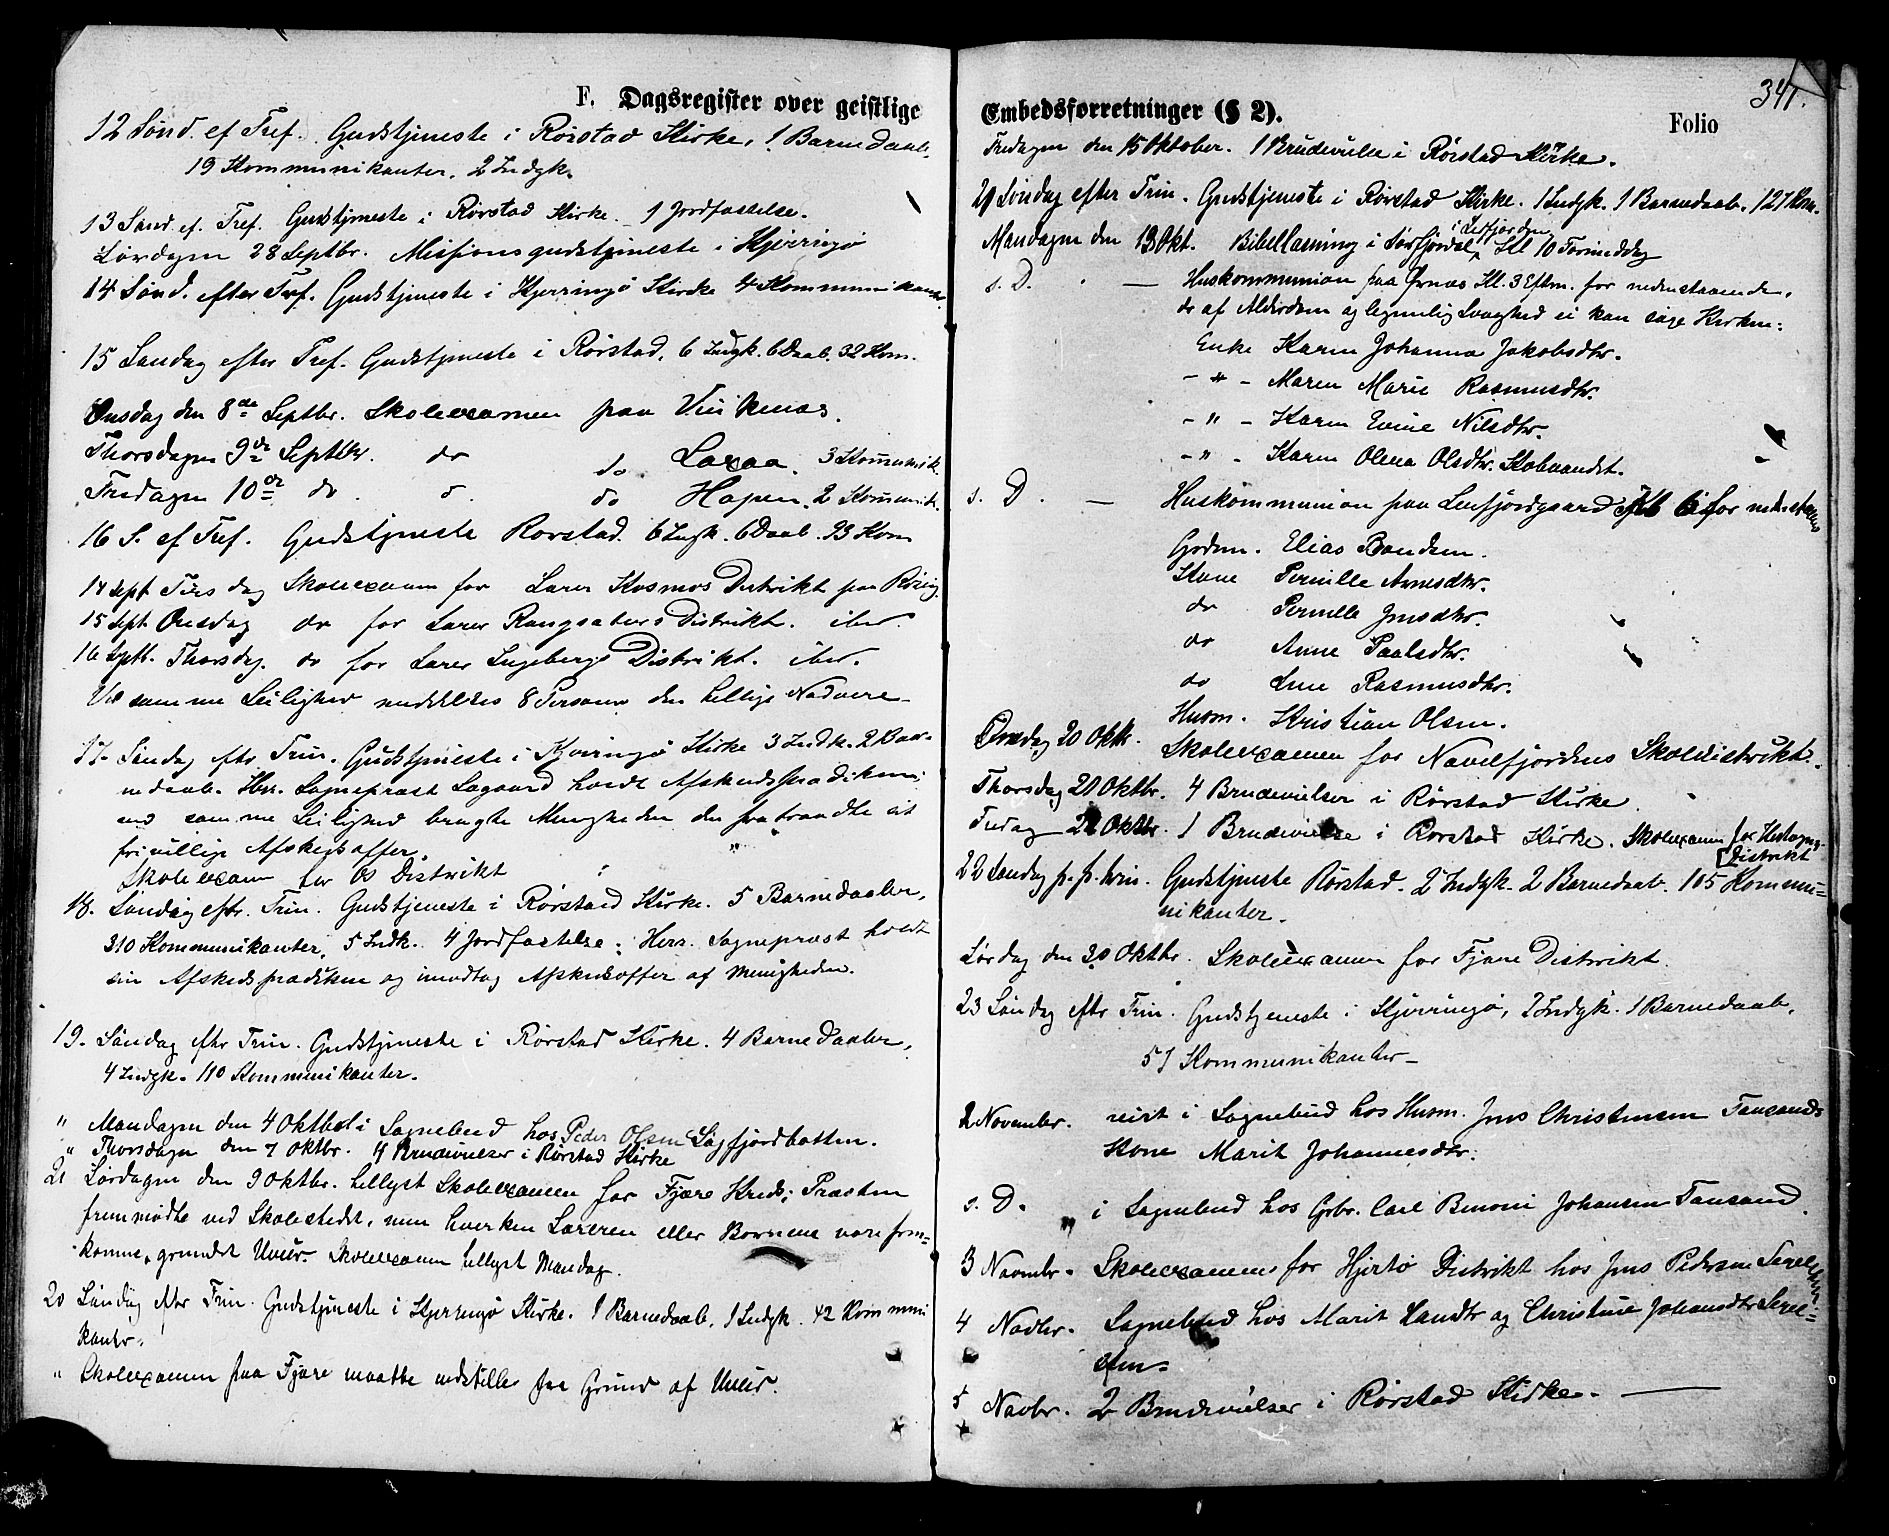 F. Dagsregister over geistlige
12 Sønd. ef Tref. Gudstjeneste i Rørstad Kirke, 1 Barnedaab,
19 Kommunikanter. 2 Indgk.
13 Sønd. ef. Tref. Gudstjeneste i Rørstad Kirke. 1 Jordfæstelse.
Løverdagen 28 Septbr. Missionsgudstjeneste i Kjerringø
14 Sønd. efter Tref. Gudstjeneste i Kjerringø Kirke 4 Kommunikanter
15 Søndag efter Tref. Gudstjeneste i Rørstad, 6 Indgk. 6 Daab. 32 Kom.
Onsdag den 8de Septbr. Skolexamen paa
Thorsdagen 9de Septbr. do do Laxaa. 3 Kommunik.
Fredagen 10de do. d. do Hopen. 2 Kommunik.
16 S. ef Tref. Gudstjeneste Rørstad. 6 Indgk. 6 Daab. 93 Kom
14 Sept Tirsdag Skolexamen for Lærer Kosmos Distrikt paa
15 Sept Onsdag do for Lærer Rangsæters Distrikt. iber.
16 Septb. Thorsdag. do for Lærer Ingebergs Distrikt. iber.
Ved samme Leilighed meddeltes 8 Personer den hellige Nadvere-
17. Søndag eftr Trin. Gudstjeneste i Kjerringø Kirke 3 Indk. 2 Bar-
nedaab. Herr. Sogneprest Søgaard holdt Afskedsprædiken;
ved samme Leilighed bragte Menigheden den fratraadte sit
frivillige Afskedsoffer.
Skolexamen for Os Distrikt
18. Søndag eftr. Trin. Gudstjeneste i Rørstad Kirke. 5 Barnedaaber,
310 Kommunikanter, 5 Indk. 4 Jordfæstelse; Herr. Sogneprest holdt
sin Afskedsprædiken og modtog Afskedsoffer af Menigheden.
19. Søndag eftr Trin. Gudstjeneste i Rørstad Kirke. 4 Barnedaaber,
4 Indgk. 110 Kommunikanter.
" Mandagen den 4 Oktbr i Sognebud hos Peder Olsen Lagfjordbotten.
" Thorsdagen den 7 Oktbr. 4 Brudevielser i Rørstad Kirke
21 Lørdagen den 9 Oktbr. hellyst Skolexamen for Fjære Kreds; Præsten
fremmødte ved Skolestedet, men hverken Læreren eller Børnene vare frem=
komne, grundet Uveir. Skolexamen hellyst Mandag.
20 Søndag efter Trin. Gudstjeneste i Kjerringø Kirke. 1 Barnedaab, 1 Indgk. 42 Kommuni
kanter.
" Skolexamen paa Fjære maatte indstilles paa Grund af Uveir.
Embedsforretninger (§ 2).
341.
Folio
Fredagen den 15 Oktober. 1 Brudevielse i Rørstad Kirke.
21 Søndag efter Trin. Gudstjeneste i Rørstad Kirke. 1 Indgk. 1 Barnedaab. 121 Kom.
i Leifjorden
Mandagen den 18 Okt. Bibellæsning i Sørfjordal, Kl 10 Formiddag
s. D. — Huskommunion paa Ørnæs Kl. 3 Eftm. for nedenstaaende,
der af Alderdom og legemlig Svaghed ei kan søge Kirken:
Enke Karen Johanna Jakobsdtr.
- " - Maren Marie Rasmusdtr.
- " - Karen Evine Nilsdtr.
- " - Karen Olena Olsdtr. Kobvandet.
s. D. — Huskommunion paa Leifjordgaard Kl 6 for nedenstaaende
Grdm. Elias Bendsen.
Kone Pernille Arnesdtr.
do Pernille Jensdtr.
do Anne Paalsdtr.
do Line Rasmusdtr.
Husm. Kristian Olsen.
Onsdag 20 Oktbr. Skolexamen for Navelfjordens Skoledistrikt.
Thorsdag 21 Oktbr. 4 Brudevielser i Rørstad Kirke.
Fredag 22 Oktbr. 1 Brudevielse i Rørstad Kirke. Skolexamen for
Distrikt
22 Søndag p. p. trin. Gudstjeneste Rørstad. 2 Indgk. 2 Barnedaab. 115 Kommu=
nikanter.
Lørdag den 30 Oktbr. Skolexamen for Fjære Distrikt.
23 Søndag eftr Trin. Gudstjeneste i Kjerringø, 2 Indgk. 1 Barnedaab,
51 Kommunikanter-
2 Novembr. reist i Sognebud hos Husm. Jens Christensen Tansands
Kone Marit Johannesdtr.
s. D. i Sognebud hos Gbr. Carl Benoni Johansen Tansand.
3 Novembr. Skolexamen for Hjertø Distrikt hos Jens Pedersen
4 Novbr. Sognebud hos Marit Handtr og Christine Johansdtr
5 Novbr. 2 Brudevielser i Rørstad Kirke. —